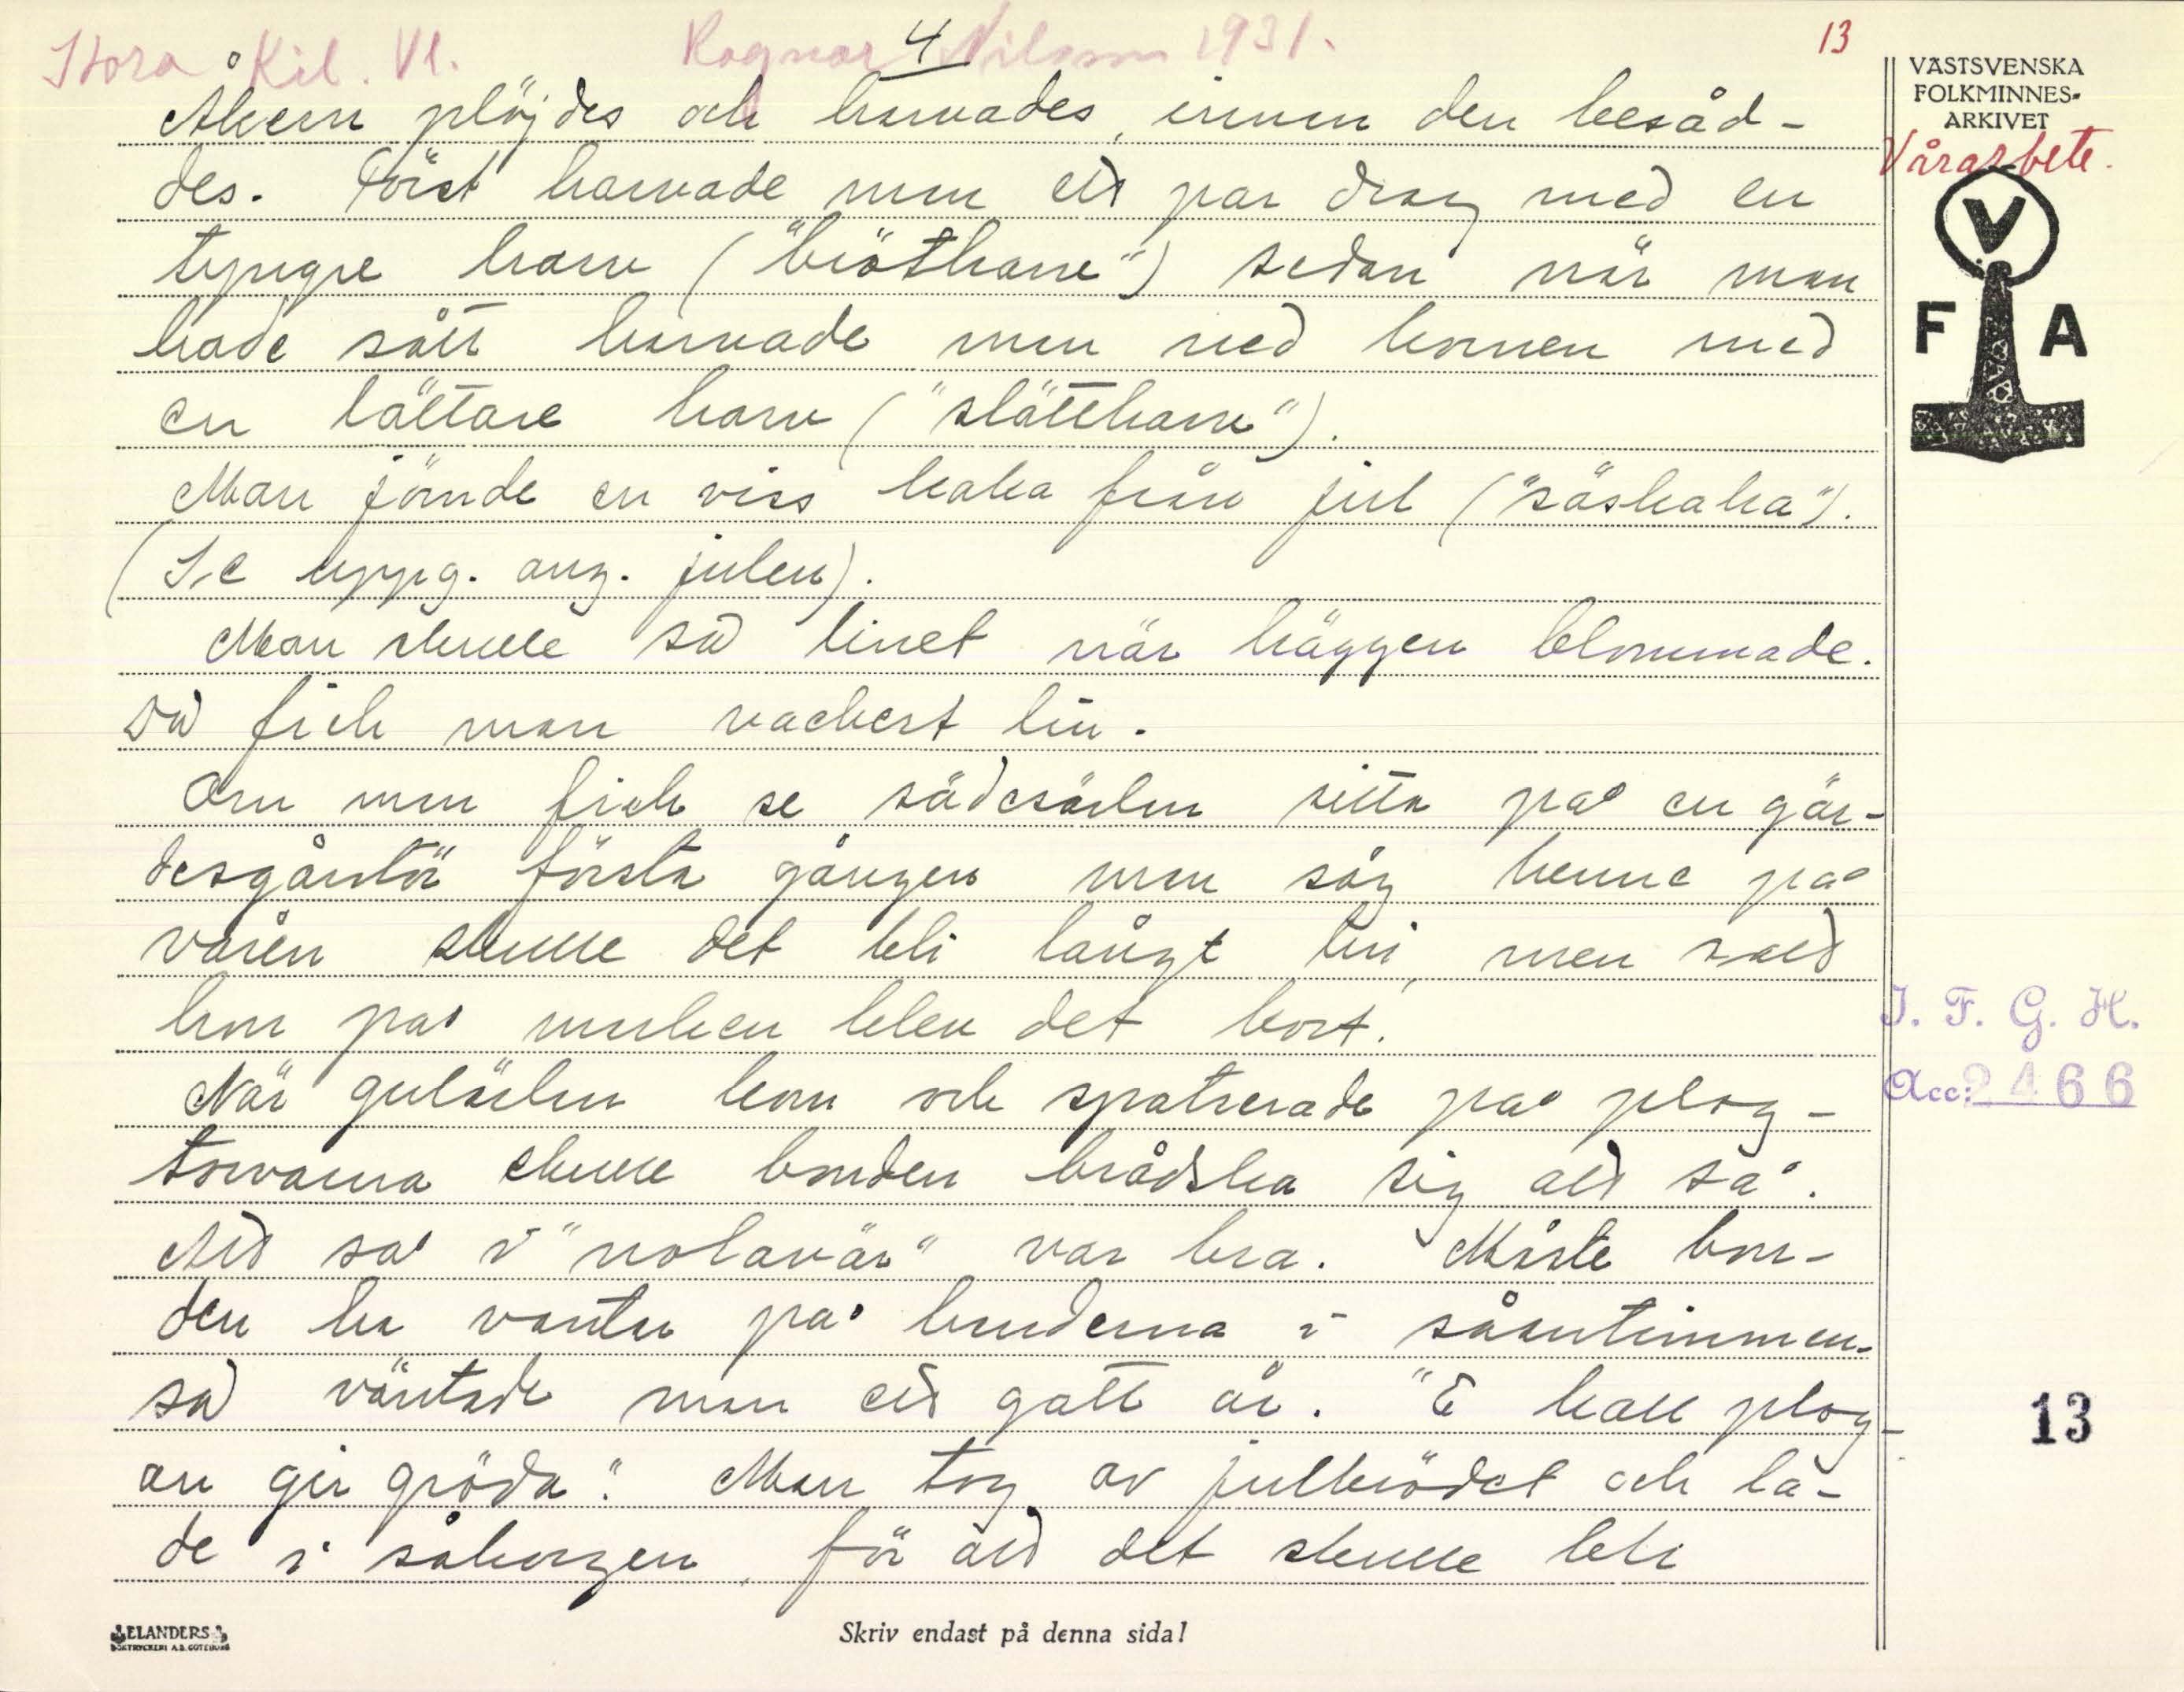 Stora Kil. Vl. Ragnar Nilsson 1931.
4
13
VÄSTSVENSKA
FOLKMINNES-
ARKIVET
Vårarbete.
V
F A
Åkern plöjdes och harvades, innan den besåd-
des. Först harvade man ett par drag med en
tyngre harv ("brötharv") sedan när man
hade sått harvade man ned kornen med
en lättare harv ("slättharv").
Man jömde en viss kaka från jul ("såskaka").
(Se uppg. ang. julen).
Man skulle så linet när häggen blommade.
Då fick man vackert lin.
Om man fick se sädesärlan sitta på en gär-
desgårdstör första gången man såg henne på
våren skulle det bli långt lin, men satt
hon på marken blev det kort.
När gulärlan kom och spatserade på plog-
torvarna skulle bonden brådska sig att så.
Att så i "nolavär" var bra. Måste bon-
den ha vantar på händerna i såsntimmen
så väntade man ett gott år. "E kall plog
an gir gröda". Man tog av julbrödet och la-
de i såkorgen, för att det skulle bli
I. F. G. H.
Acc: 2466
13
ELANDERS
BOKTRYCKERI A.B. GÖTEBORG
Skriv endast på denna sida!